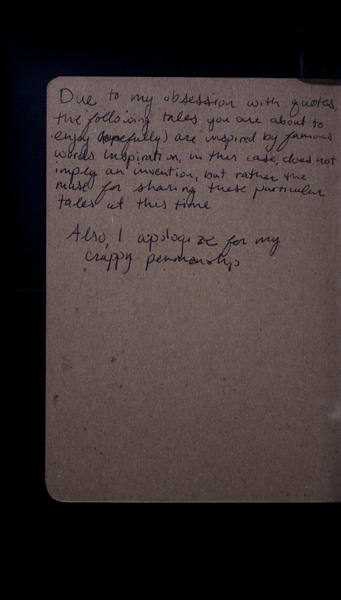 Due to my obsession with quotes,
the following tales you are about to
enjoy (hopefully) are inspired by famous
words. Inspiration, in this case, does not
imply an invention, but rather the
muse for sharing these particular
tales at this time
Also, I apologize for my
crappy penmanship